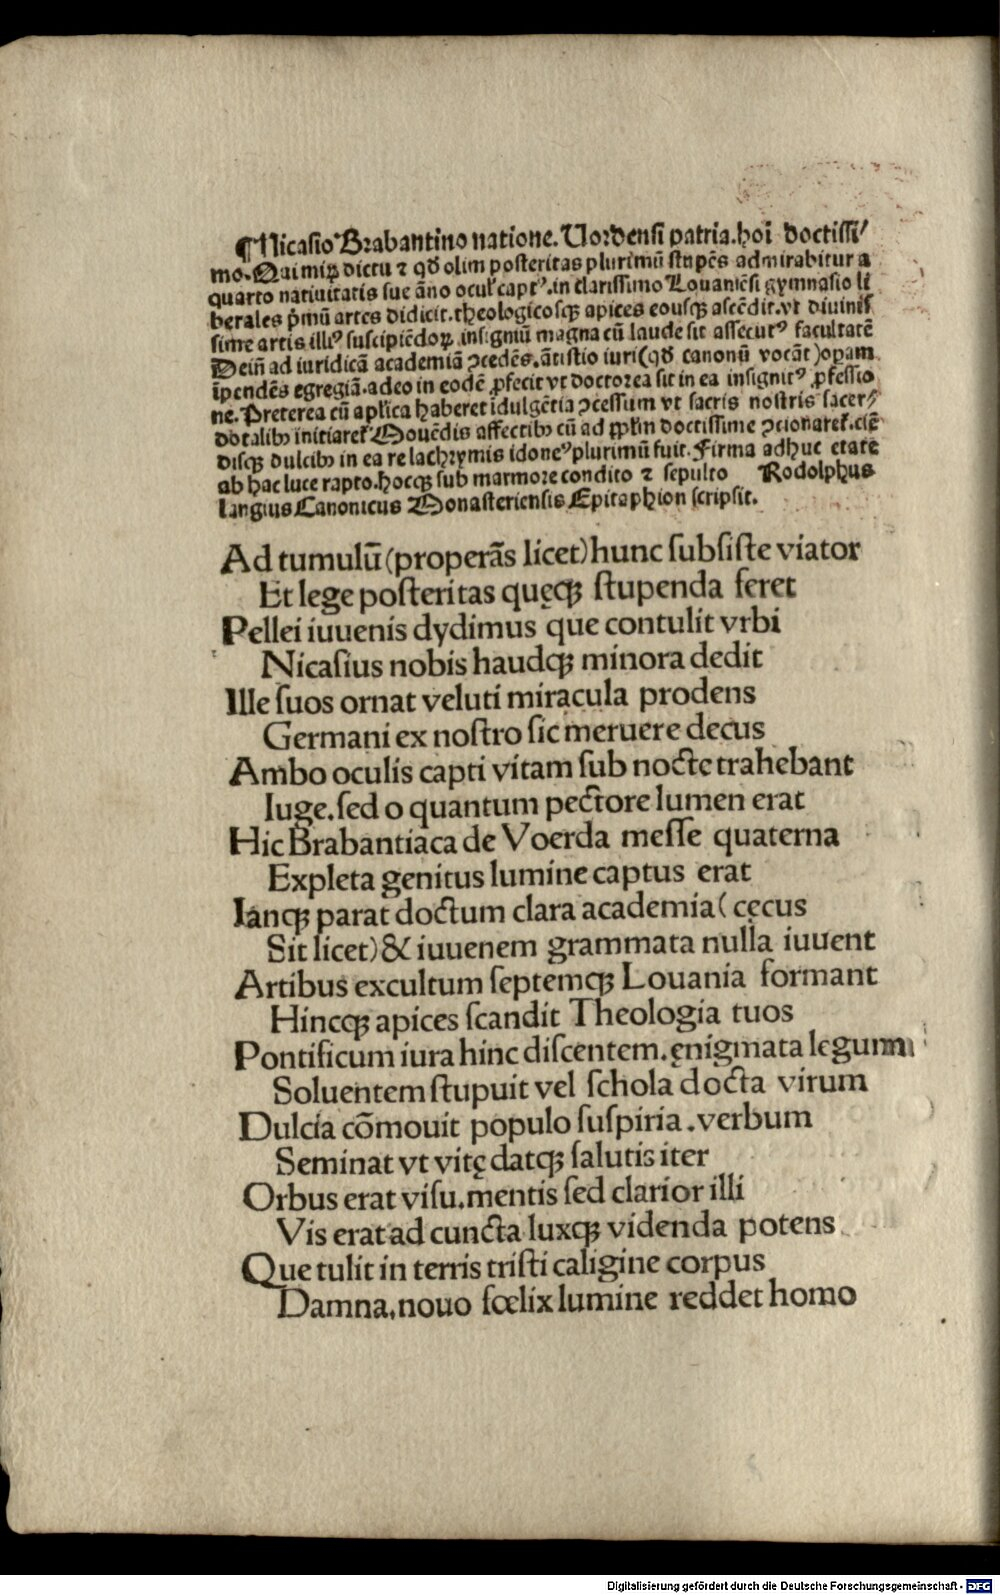 ¶Nicasio Brabantino natione. Uordensi patria. hoi᷑ doctissi/
mo. Qui miꝝ dictu ⁊ qd̄ olim posteritas plurimū stupēs admirabitur a
quarto natiuitatis sue āno ocul' captꝰ. in clarissimo Louaniēsi gymnasio li
berales pͥmū artes didicit. theologicosqꝫ apices eousqꝫ ascēdit. vt diuinis
sime artis illiꝰ suscipiēdoꝝ insigniū magna cū laude sit assecutꝰ facultatē
Dein̄ ad iuridicā academiā ꝓcedēs. ātistio iuri (qd̄ canonū vocāt) opam
īpendēs egregiā. adeo in eodē ꝓfecit vt doctorea sit in ea insignitꝰ ꝓfessio
ne. Preterea cū aplica haberet idulgētia ꝯcessum vt sacris nostris sacer/
dotalibꝫ initiaret᷑ Mouēdis affectibꝫ cū ad pplm̄ doctissime ꝯcionaret᷑. ciē
disqꝫ dulcibꝫ in ea re lachrymis idoneꝰ plurimū fuit. Firma adhuc etate
ab hac luce rapto. hocqꝫ sub marmore condito ⁊ sepulto Rodolphus
langius Canonicus Monasteriensis Epitaphion scripsit.
Ad tumulū (properās licet) hunc subsiste viator
Et lege posteritas quęqꝫ stupenda feret
Pellei iuuenis dydimus que contulit vrbi
Nicasius nobis haudqꝫ minora dedit
Ille suos ornat veluti miracula prodens
Germani ex nostro sic meruere decus
Ambo oculis capti vitam sub nocte trahebant
Iuge. sed o quantum pectore lumen erat
Hic Brabantiaca de Voerda messe quaterna
Expleta genitus lumine captus erat
Ianqꝫ parat doctum clara academia (cęcus
Sit licet) & iuuenem grammata nulla iuuent
Artibus excultum septemqꝫ Louania formant
Hincqꝫ apices scandit Theologia tuos
Pontificum iura hinc discentem. ęnigmata legum
Soluentem stupuit vel schola docta virum
Dulcia cōmouit populo suspiria. verbum
Seminat vt vitę datqꝫ salutis iter
Orbus erat visu. mentis sed clarior illi
Vis erat ad cuncta luxqꝫ videnda potens
Que tulit in terris tristi caligine corpus
Damna, nouo fœlix lumine reddet homo
Digitalisierung gefördert durch die Deutsche Forschungsgemeinschaft - DFG